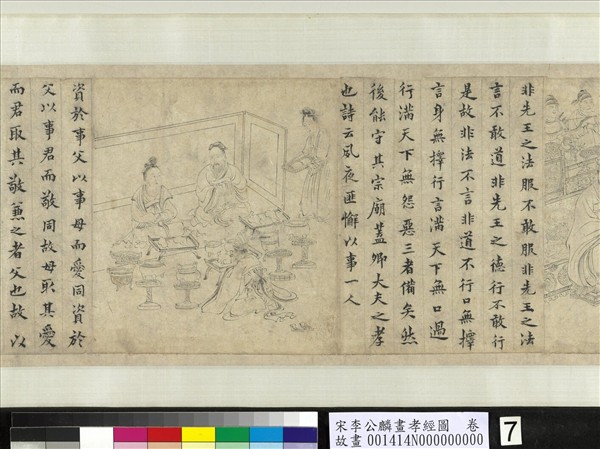 非先王之法服不敢服非先王之法
言不敢道非先王之德行不敢行
是故非法不言非道不行口無擇
言身無擇行言滿天下無口過
行滿天下無怨惡三者備矣然
後能守其宗廟蓋卿大夫之孝
也詩云夙夜匪懈以事一人
資於事父以事母而愛同資於
父以事君而敬同故母取其愛
而君取其敬兼之者父也故以
宋李公麟畫孝經圖 卷
故畫 001414N000000000
7